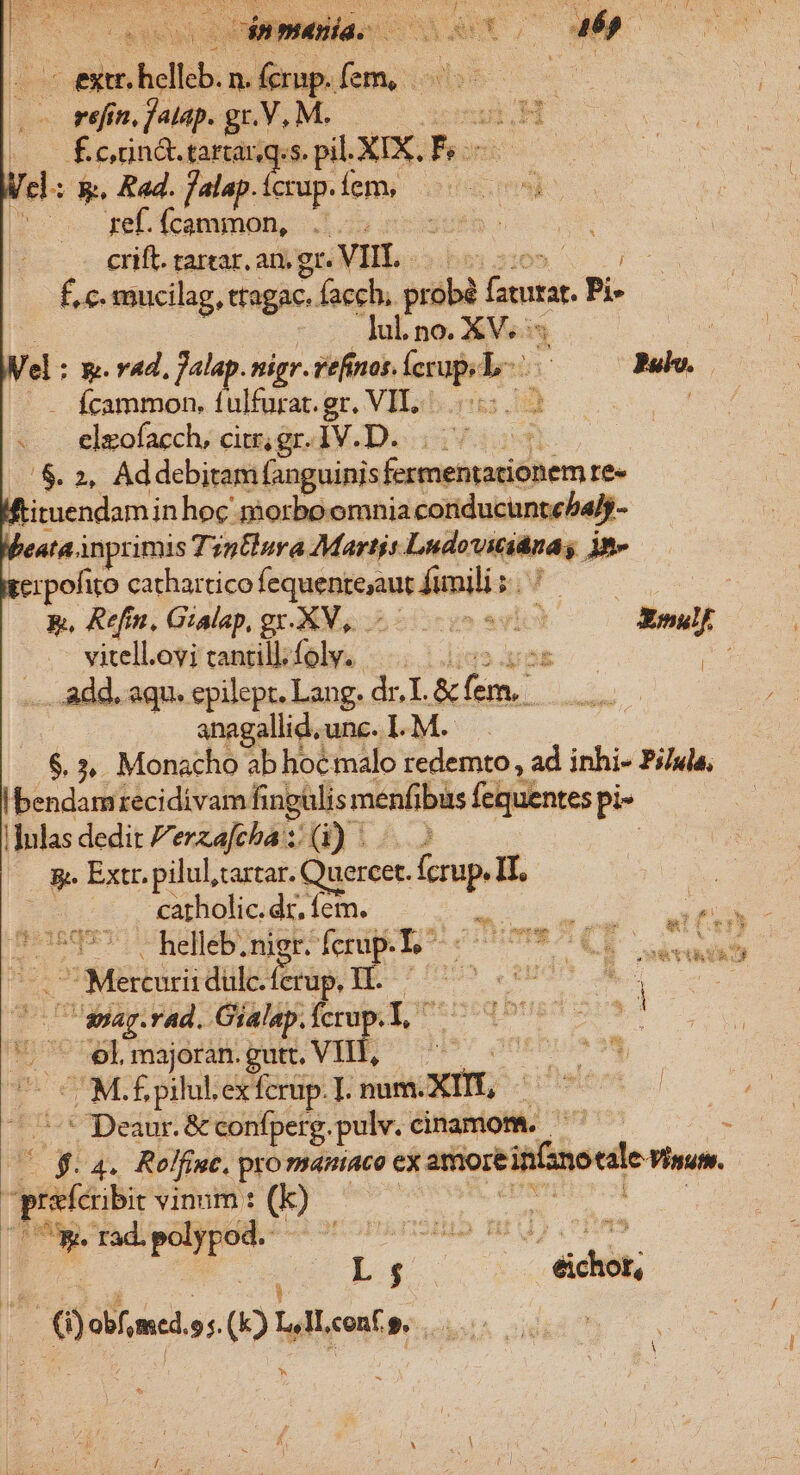 in mania. 169
extr. helleb. n. ſcrup. ſem,
reſin, jalap. gr. V, M.
f. c, tinct. tartar, q. s. pil. XIX, F.
Vel: ℞. Rad. Jalap. ſcrup. ſem,
reſ. ſcammon,
criſt. tartar, an. gr. VIII.
f, c. mucilag, tragac. ſacch, probè ſaturat. Pi-
lul. no. XV.
Vel : ℞. rad. Jalap. nigr. reſinos. ſcrup, I, Pulv.
ſcammon. ſulfurat. gr. VII,
elæoſacch, citr, gr. IV. D.
§. 2, Ad debitam ſanguinis fermentationem re-
ſtituendam in hoc morbo omnia conducunt chaly-
beata inprimis Tinctura Martis Ludoviciana, in-
terpoſito cathartico ſequente, aut ſimili :
℞, Reſin, Gialap, gr. XV, Emulſ.
vitell. ovi tantill. ſolv.
add. aqu. epilept. Lang. dr. I. & ſem.
anagallid, unc. I. M.
§. 3, Monacho ab hoc malo redemto, ad inhi- Pilula,
bendam recidivam ſingulis menſibus ſequentes pi-
lulas dedit Verzaſcha : (i)
℞. Extr. pilul, tartar. Quercet. ſcrup. II,
catholic. dr, ſem.
helleb. nigr. ſcrup. I,
Mercurii dulc. ſcrup, II.
mag. rad. Gialap. ſcrup. I,
ol, majoran. gutt. VIII,
M. f. pilul. ex ſcrup. I. num. XIII,
Deaur. & conſperg. pulv. cinamom.
§. 4. Rolfinc. pro maniaco ex amore inſano tale Vinum.
præſcribit vinum : (k)
℞. rad. polypod.
L 5 cichor,
(i) obſ, med. 95. (k) L. II. conſ. 9.